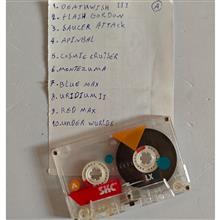 A
1. DEATHWISH III
2. FLASH GORDON
3. SAUCER ATTACK
4. APINBAL
5. COSMIC CRUISER
6. MONTEZUMA
7. BLUE MAX
8. URIDIUM II
9. RED MAX
10. UNDER WURLDE
A
SKC
LX